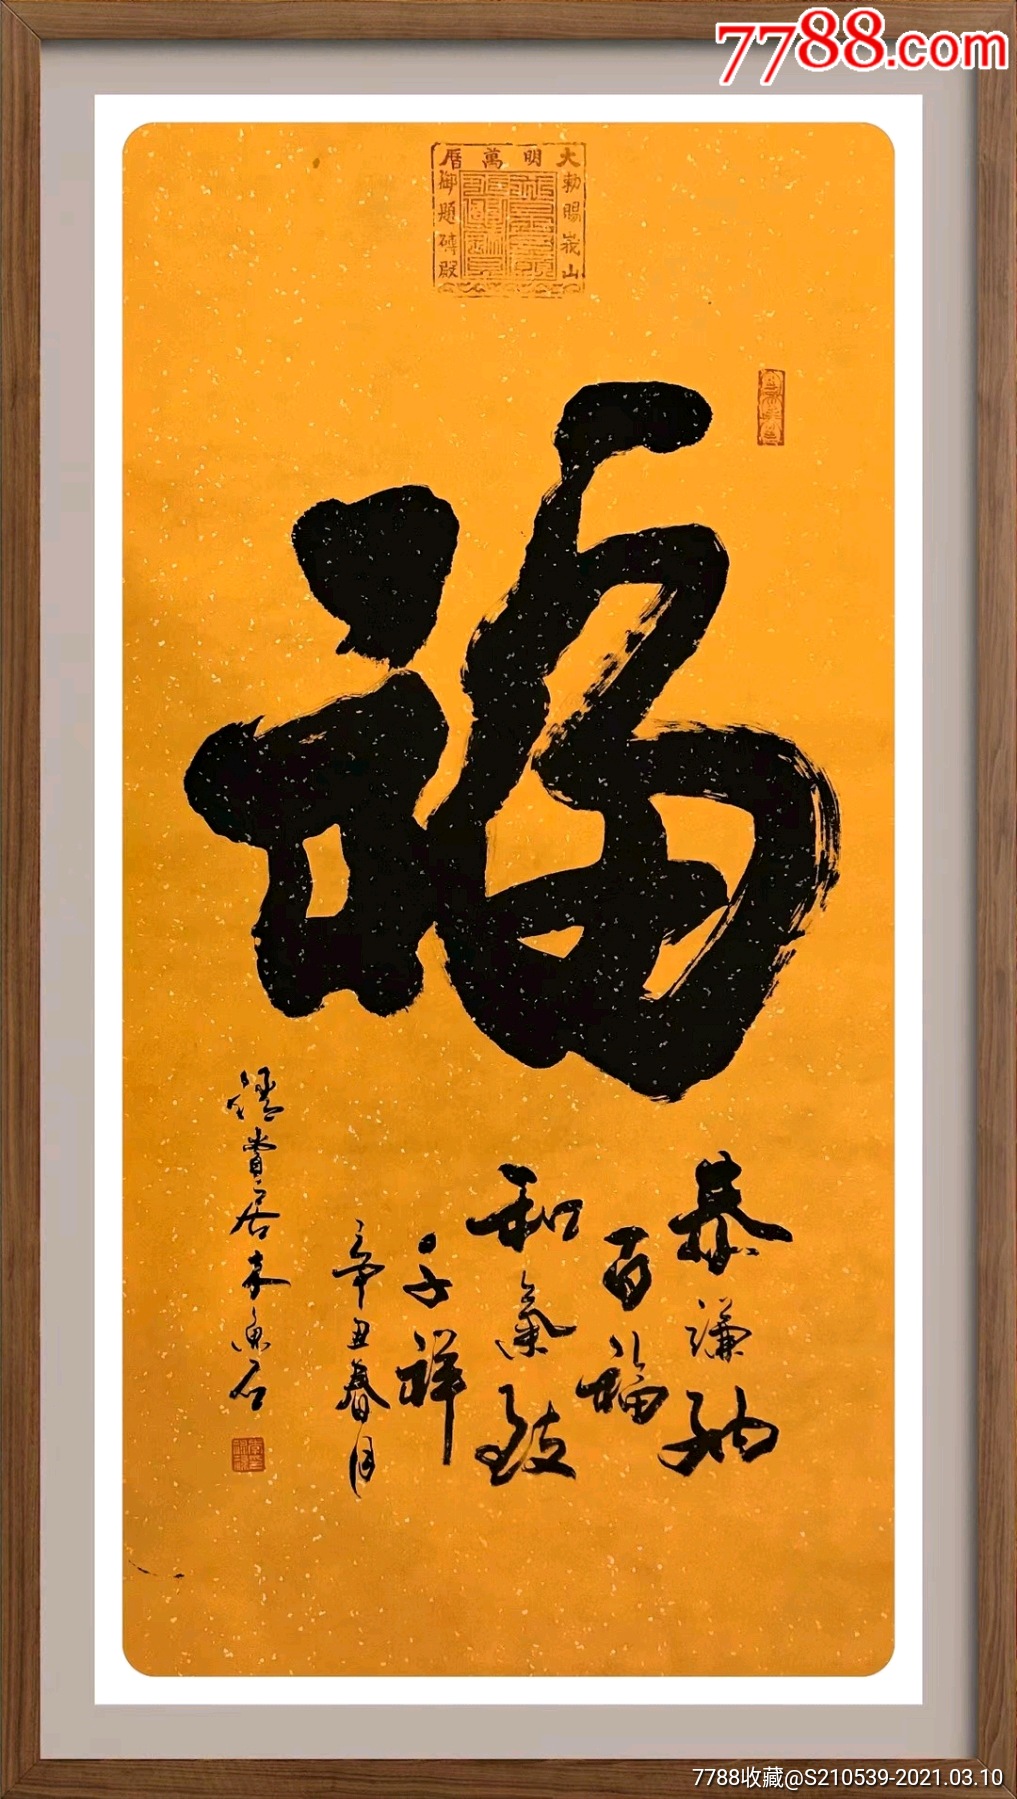 7788.com
大明萬曆
勅賜峩山
御題磚殿
福
恭謙納
百福
和氣致
千祥
辛丑春月
鑑賞居主魚石
7788收藏@S210539-2021.03.10